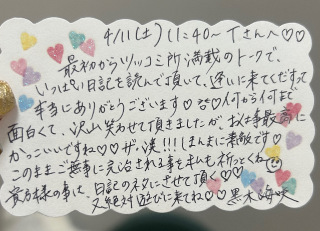 4/11(土) 11:40~ Tさんへ♡♡
最初からツッコミ所満載のトークで、
いっぱい日記を読んで頂いて、逢いに来てくださって
本当にありがとうございます♡ 何から何まで
面白くて、沢山笑わせて頂きましたが、お仕事最高に
かっこいいですね♡♡ ザ・漢!!!(まんまに素敵です♡
このままご無事に完治される事を私も祈ってくね
貴方様の事は、日記のネタにさせて頂く♡♡
又絶対遊びに来てね♡♡ 黒木